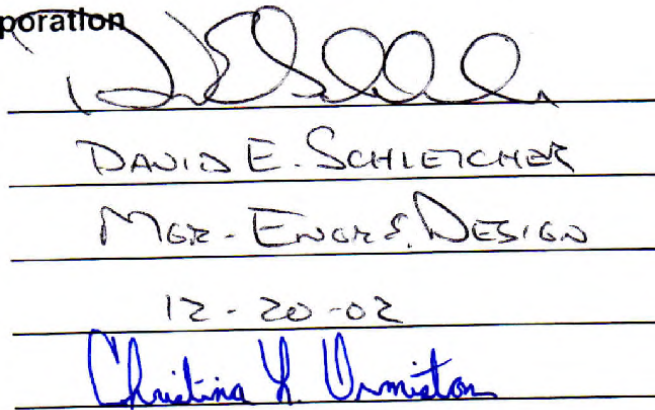 poration
DAVID E. SCHLEICHER
MGR - ENGR & DESIGN
12-20-02
Christina L. Ormiston